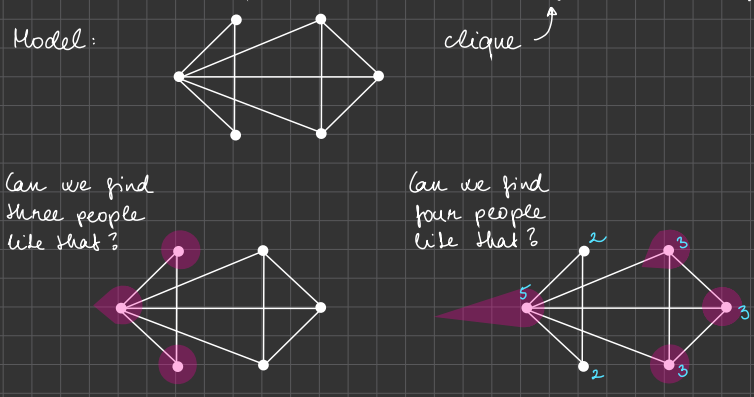 Model:
clique
Can we find
three people
like that?
Can we find
four people
like that?
2
3
5
3
2
3